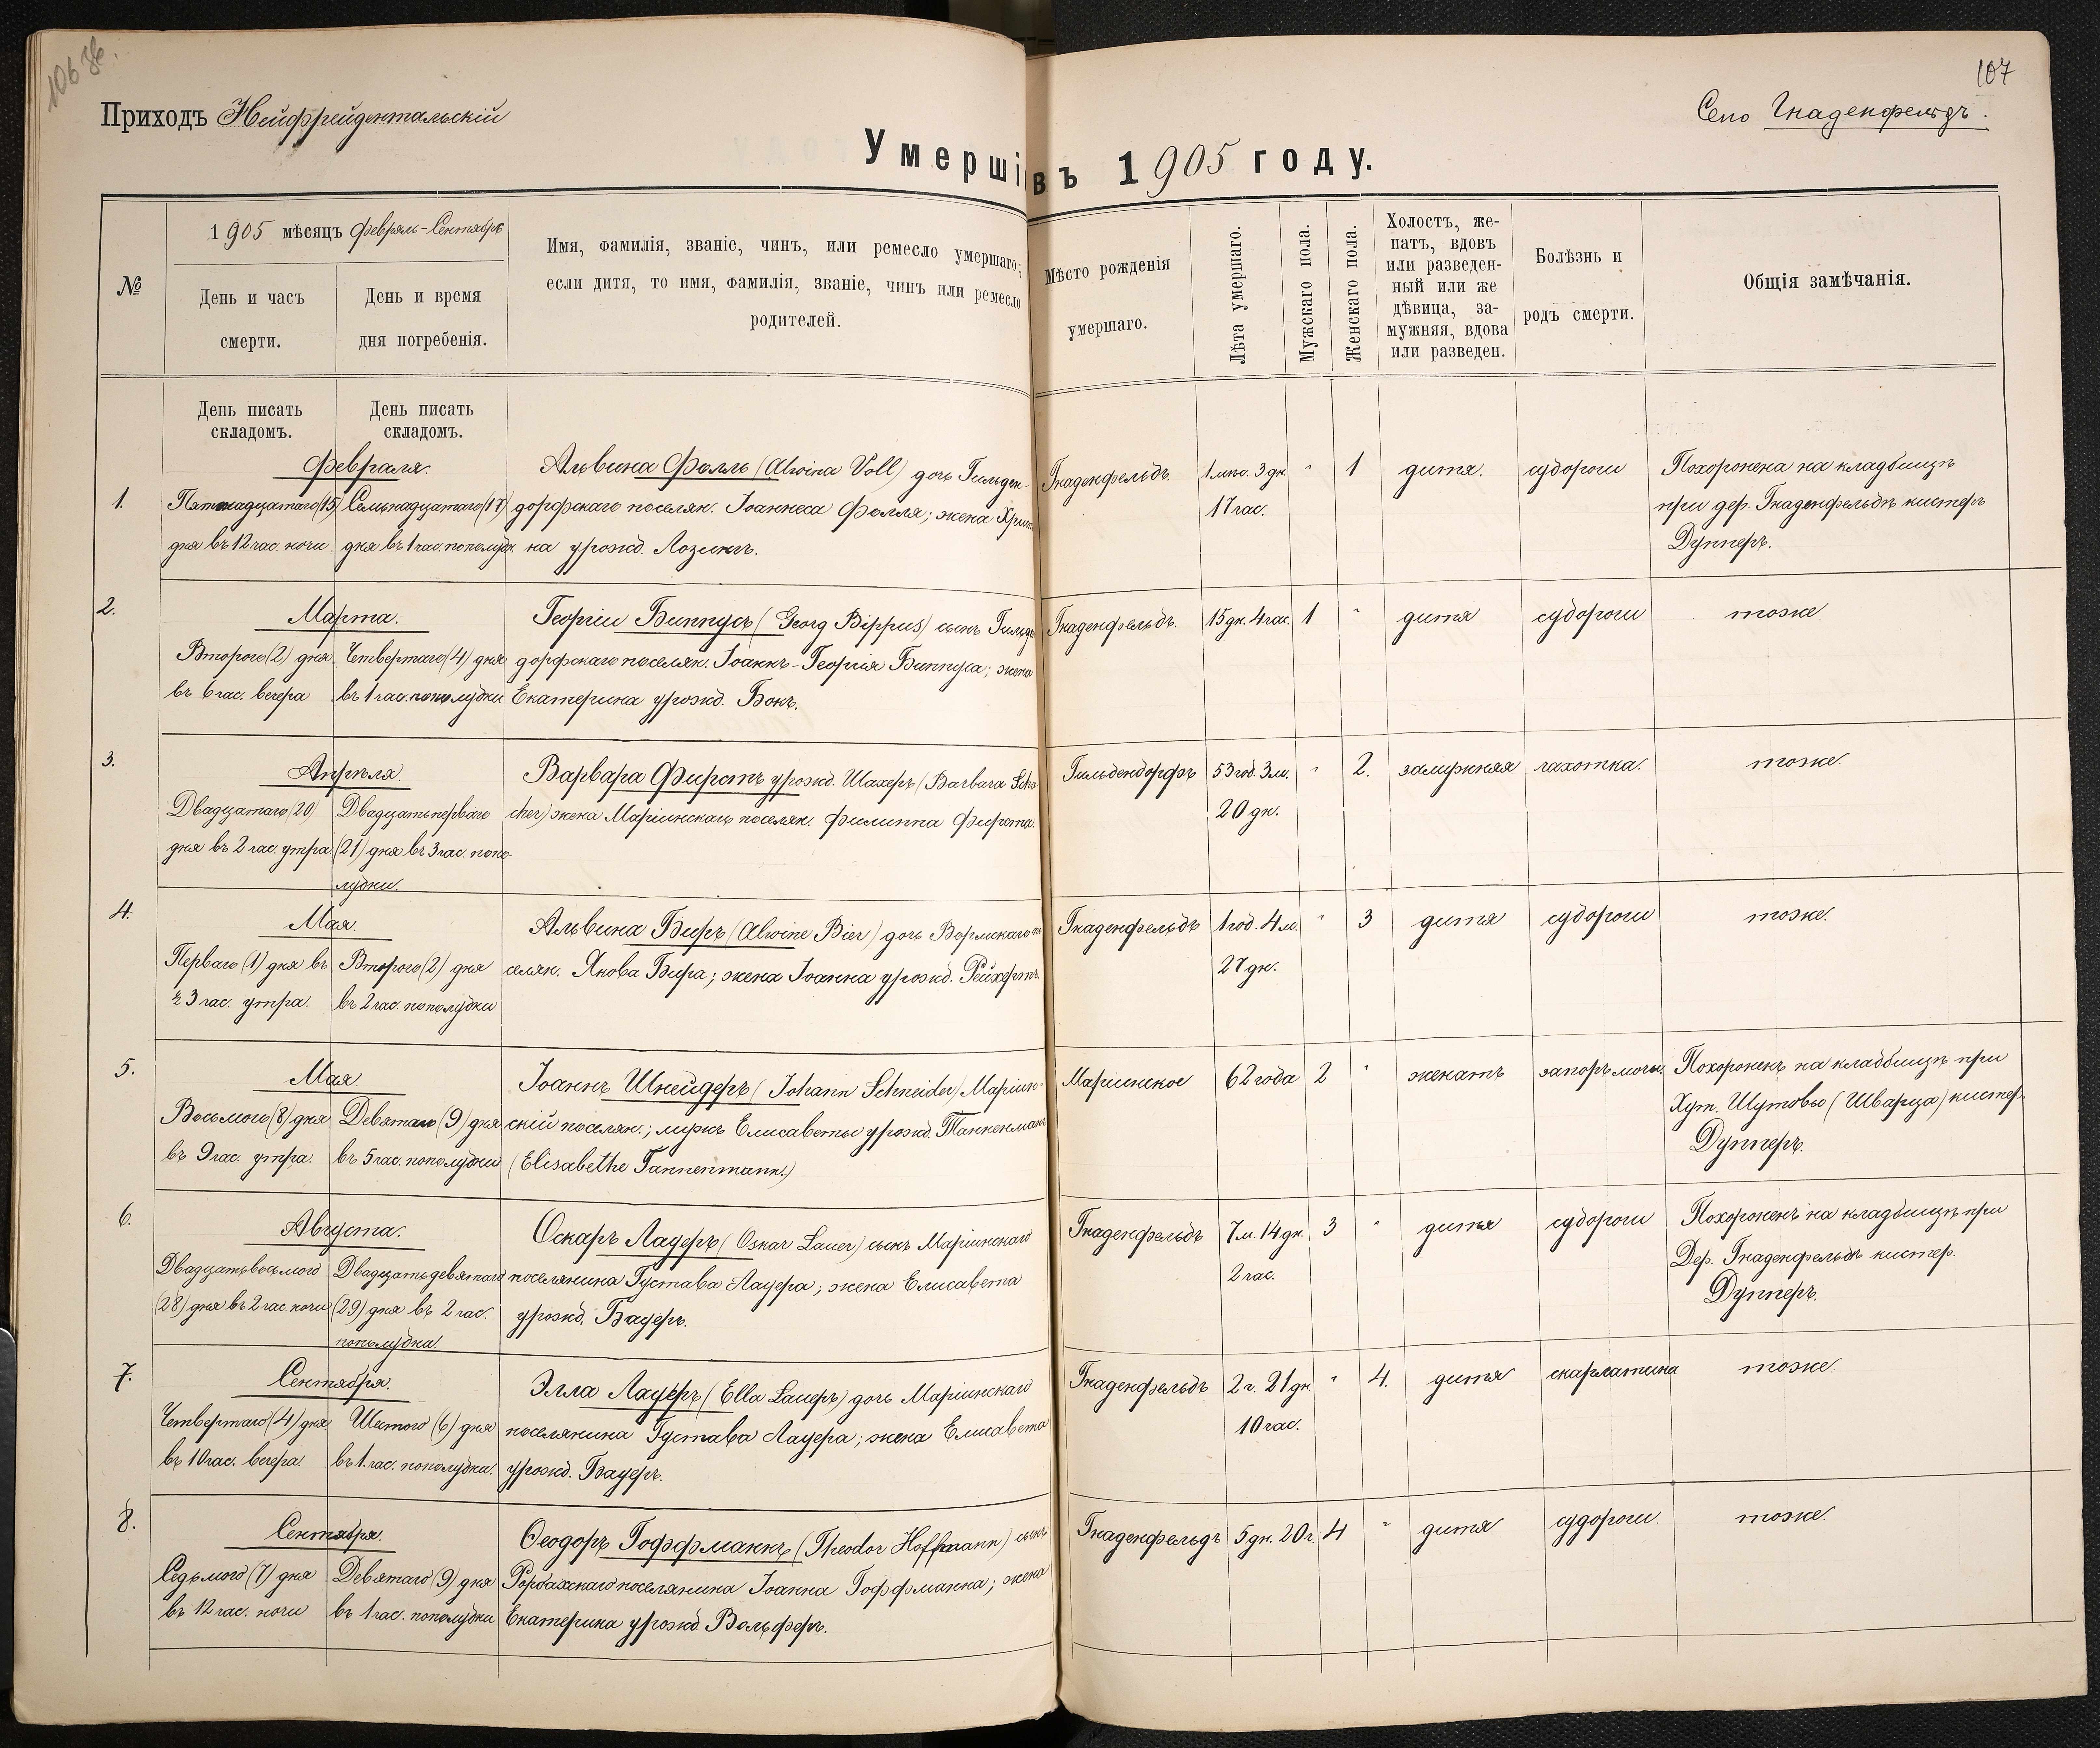 106 об.
107
Приходъ Нейфрейдентальскій
Село Гнаденфельдъ.
Умершіе въ 1905 году.
№
1905 мѣсяцъ Февраль-Сентябрь
День и часъ смерти.
День и время дня погребенія.
Имя, фамилія, званіе, чинъ, или ремесло умершаго;
если дитя, то имя, фамилія, званіе, чинъ или ремесло
родителей.
Мѣсто рожденія
умершаго.
Лѣта умершаго.
Мужскаго пола.
Женскаго пола.
Холостъ, же-
натъ, вдовъ
или разведен-
ный или же
дѣвица, за-
мужняя, вдова
или разведен.
Болѣзнь и
родъ смерти.
Общія замѣчанія.
День писать
складомъ.
День писать
складомъ.
1.
Февраля.
Пятнадцатаго (15)
дня въ 12 час. ночи
Семьнадцатаго (17)
дня въ 1 час. пополудн.
Альвина Фолль (Alwina Voll) дочь Гильден-
дорфскаго поселян. Іоаннеса Фолля; жена Христи
на урожд. Лозингъ.
Гнаденфельдъ.
1 мѣс. 3 дн.
17 час.
"
1
дитя.
судороги
Похоронена на кладбищѣ
при дер. Гнаденфельдѣ кистеръ
Дупперъ.
2.
Марта.
Второго (2) дня
въ 6 час. вечера
Четвертаго (4) дня
въ 1 час. пополудни
Георгій Биппусъ (Georg Bippus) сынъ Гильден
дорфскаго поселян. Іоаннъ-Георгія Биппуса; жена
Екатерина урожд. Бокъ.
Гнаденфельдъ.
15 дн. 4 час.
1
"
дитя
судороги
тоже
3.
Апрѣля.
Двадцатаго (20)
дня въ 2 час. утра
Двадцатьперваго
(21) дня въ 3 час. попо-
лудни.
Варвара Фирстъ урожд. Шахеръ (Barbara Scha
cher) жена Маріинскаго поселян. Филиппа Фирста.
Гильдендорфъ
53 год. 3 м.
20 дн.
"
2.
замужняя
чахотка.
тоже.
4.
Мая.
Перваго (1) дня въ
въ 3 час. утра.
Второго (2) дня
въ 2 час. пополудни
Альвина Биръ (Alwine Bier) дочь Вормскаго по
селян. Якова Бира; жена Іоанна урожд. Рейхертъ.
Гнаденфельдъ
1 год. 4 м.
27 дн.
"
3
дитя
судороги
тоже.
5.
Мая.
Восьмого (8) дня
въ 9 час. утра.
Девятаго (9) дня
въ 5 час. пополудни
Іоаннъ Шнейдеръ (Johann Schneider) Маріин-
скій поселян.; мужъ Елисаветы урожд. Танненманъ
(Elisabethe Tannenmann.)
Маріинское
62 года
2
"
женатъ
запоръ мочи.
Похороненъ на кладбищѣ при
Хут. Шутово (Шварца) кистер.
Дупперъ.
6.
Августа.
Двадцатьвосьмого
(28) дня въ 2 час. ночи
Двадцатьдевятаго
(29) дня въ 2 час.
пополудни.
Оскаръ Лауеръ (Oskar Lauer) сынъ Маріинскаго
поселянина Густава Лауера; жена Елисавета
урожд. Бауеръ.
Гнаденфельдъ
7 м. 14 дн.
2 час.
3
"
дитя
судороги
Похороненъ на кладбищѣ при
Дер. Гнаденфельдъ кистер.
Дупперъ.
7.
Сентября.
Четвертаго (4) дня
въ 10 час. вечера.
Шестого (6) дня
въ 1. час. пополудни.
Элла Лауеръ (Ella Lauerъ) дочь Маріинскаго
поселянина Густава Лауера; жена Елисавета
урожд. Бауеръ.
Гнаденфельдъ
2 г. 21 дн.
10 час.
"
4.
дитя
скарлатина
тоже
8.
Сентября.
Седьмого (7) дня
въ 12 час. ночи
Девятаго (9) дня
въ 1 час. пополудни
Ѳеодоръ Гоффманнъ (Theodor Hoffmann) сынъ
Рорбахскаго поселянина Іоанна Гоффманна; жена
Екатерина урожд. Вольферъ.
Гнаденфельдъ
5 дн. 20 ч.
4
"
дитя
судороги.
тоже.